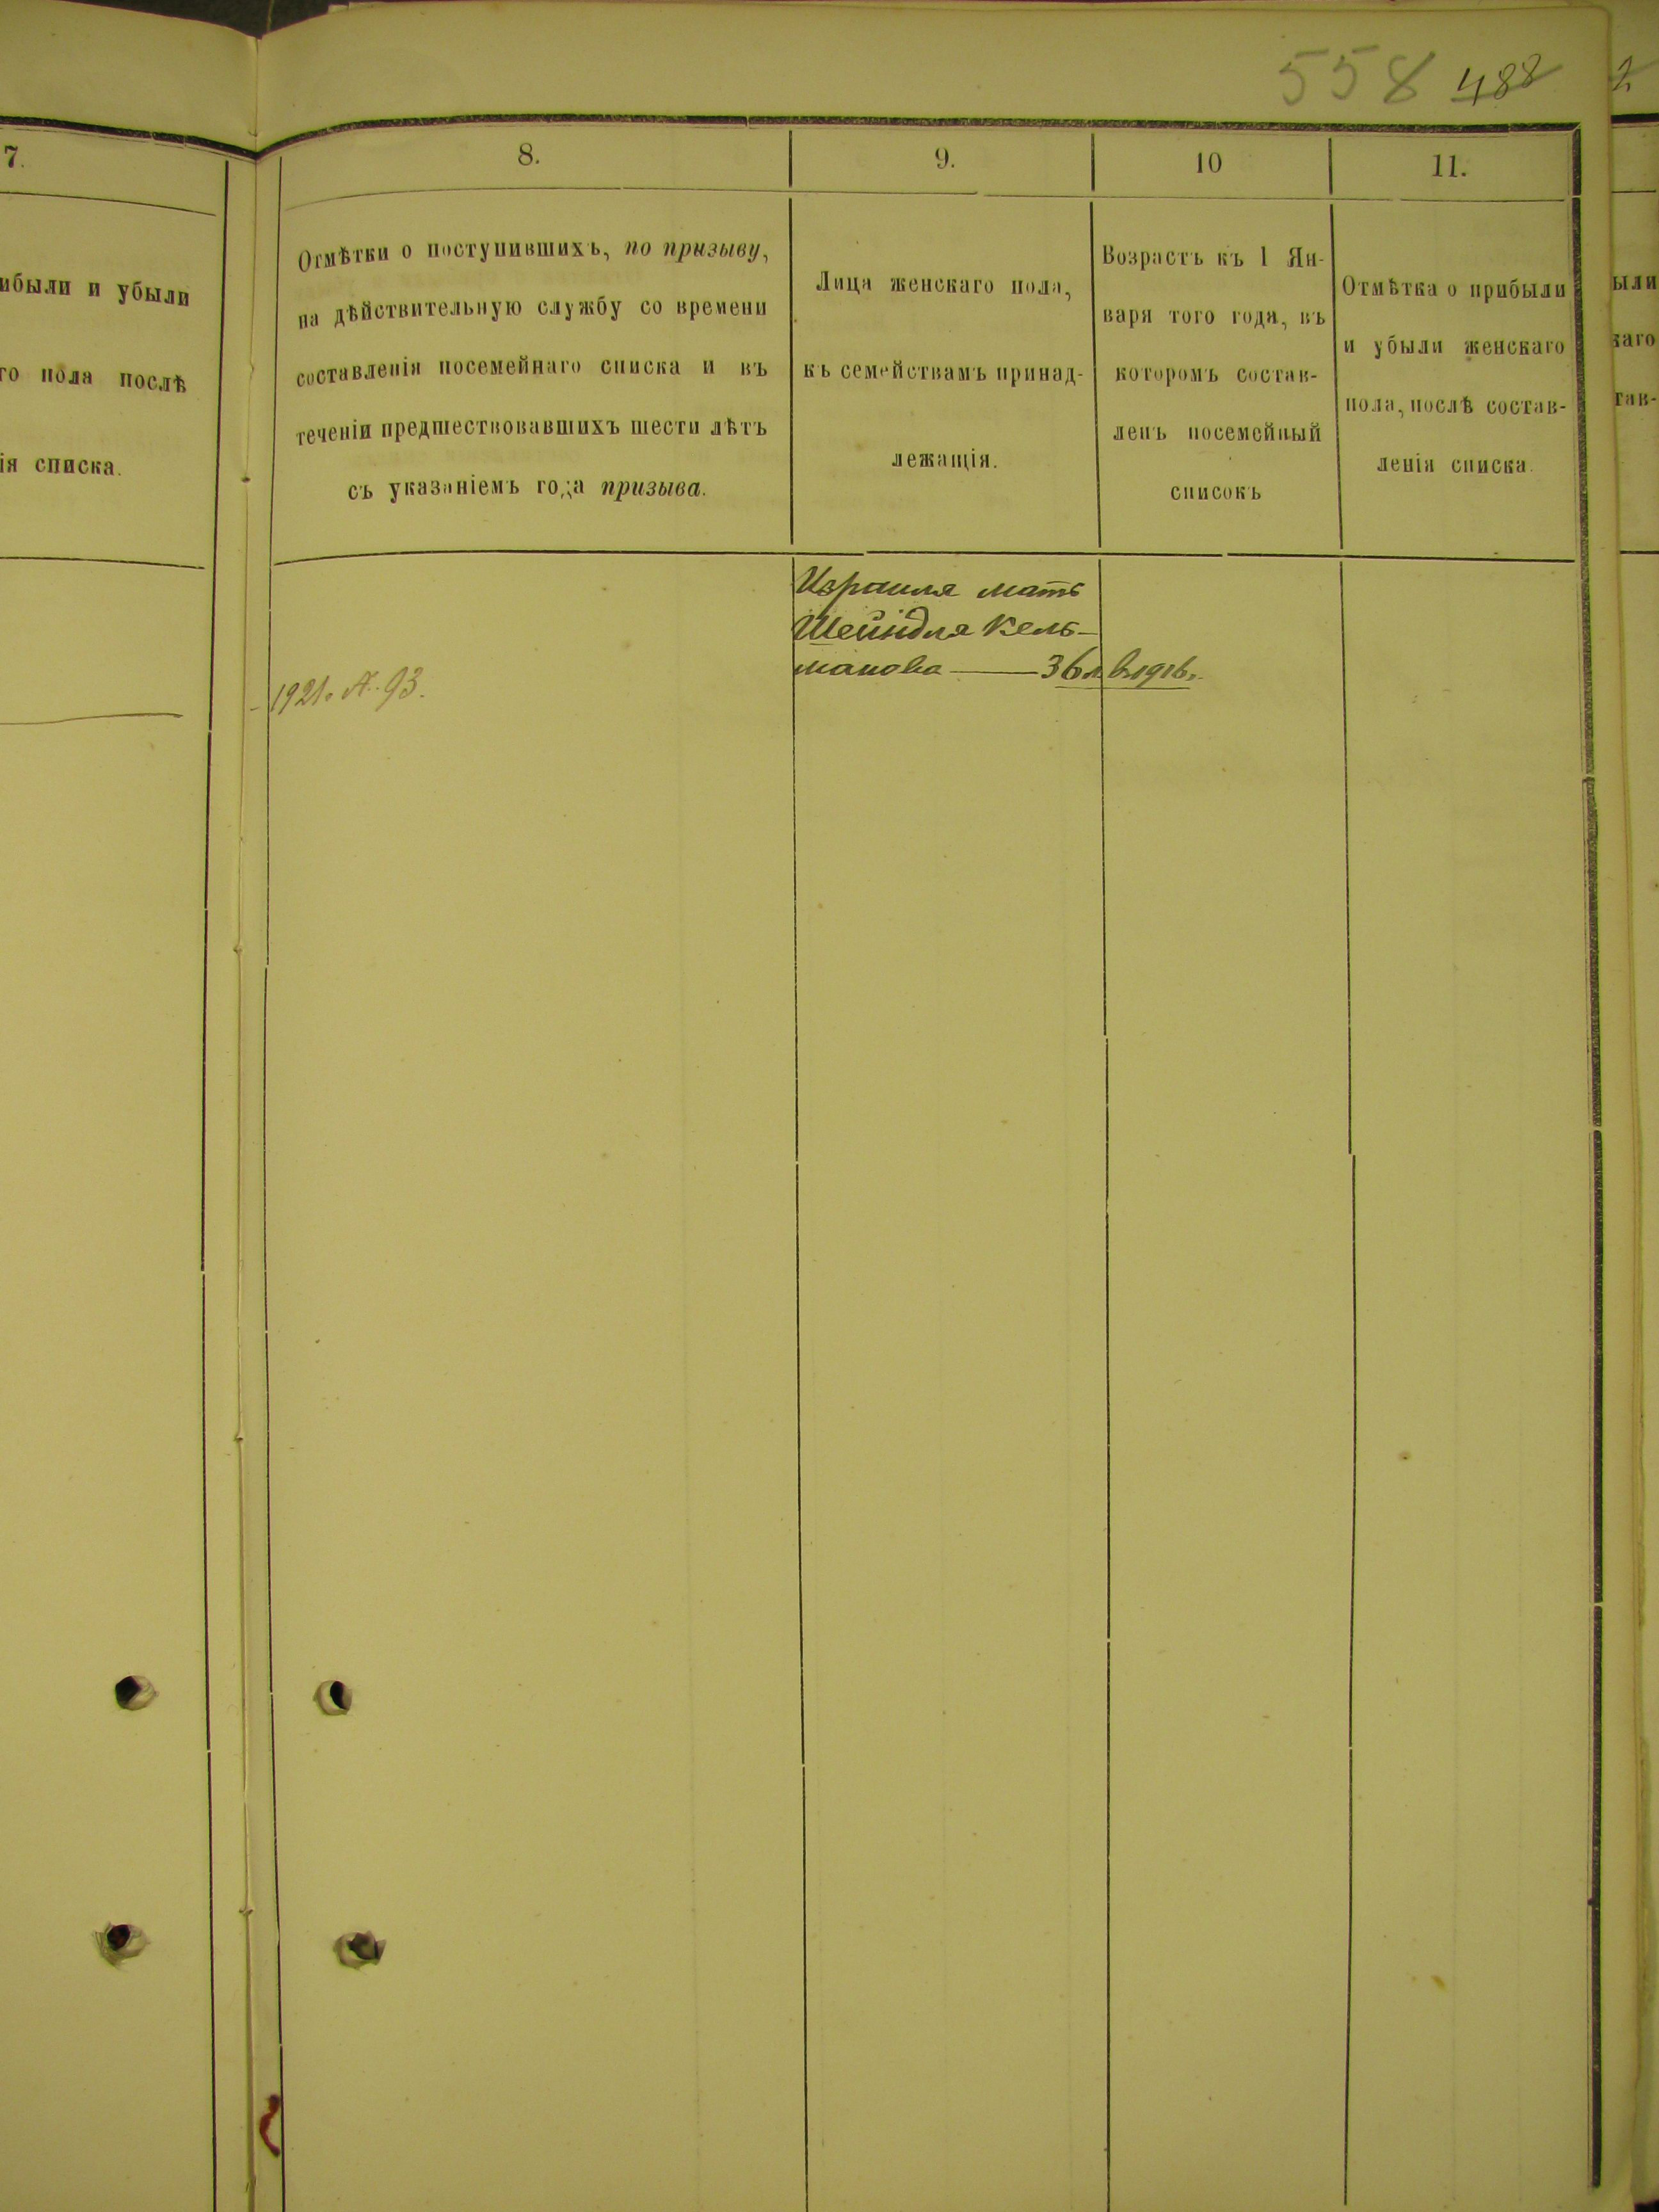 558 488
7.
ибыли и убыли
го пола послѣ
ія списка.
8.
Отмѣтки о поступившихъ, по призыву,
на дѣйствительную службу со времени
составленія посемейнаго списка и въ
теченіи предшествовавшихъ шести лѣтъ
съ указаніемъ года призыва.
9.
Лица женскаго пола,
къ семействамъ принад-
лежащія.
10
Возрастъ къ 1 Ян-
варя того года, въ
которомъ состав-
ленъ посемейный
списокъ
11.
Отмѣтка о прибыли
и убыли женскаго
пола, послѣ состав-
ленія списка.
ыли
каго
тав-
Израиля мать
Шейндля Кель-
манова — 36 л. в 1916 г.
1921 93.